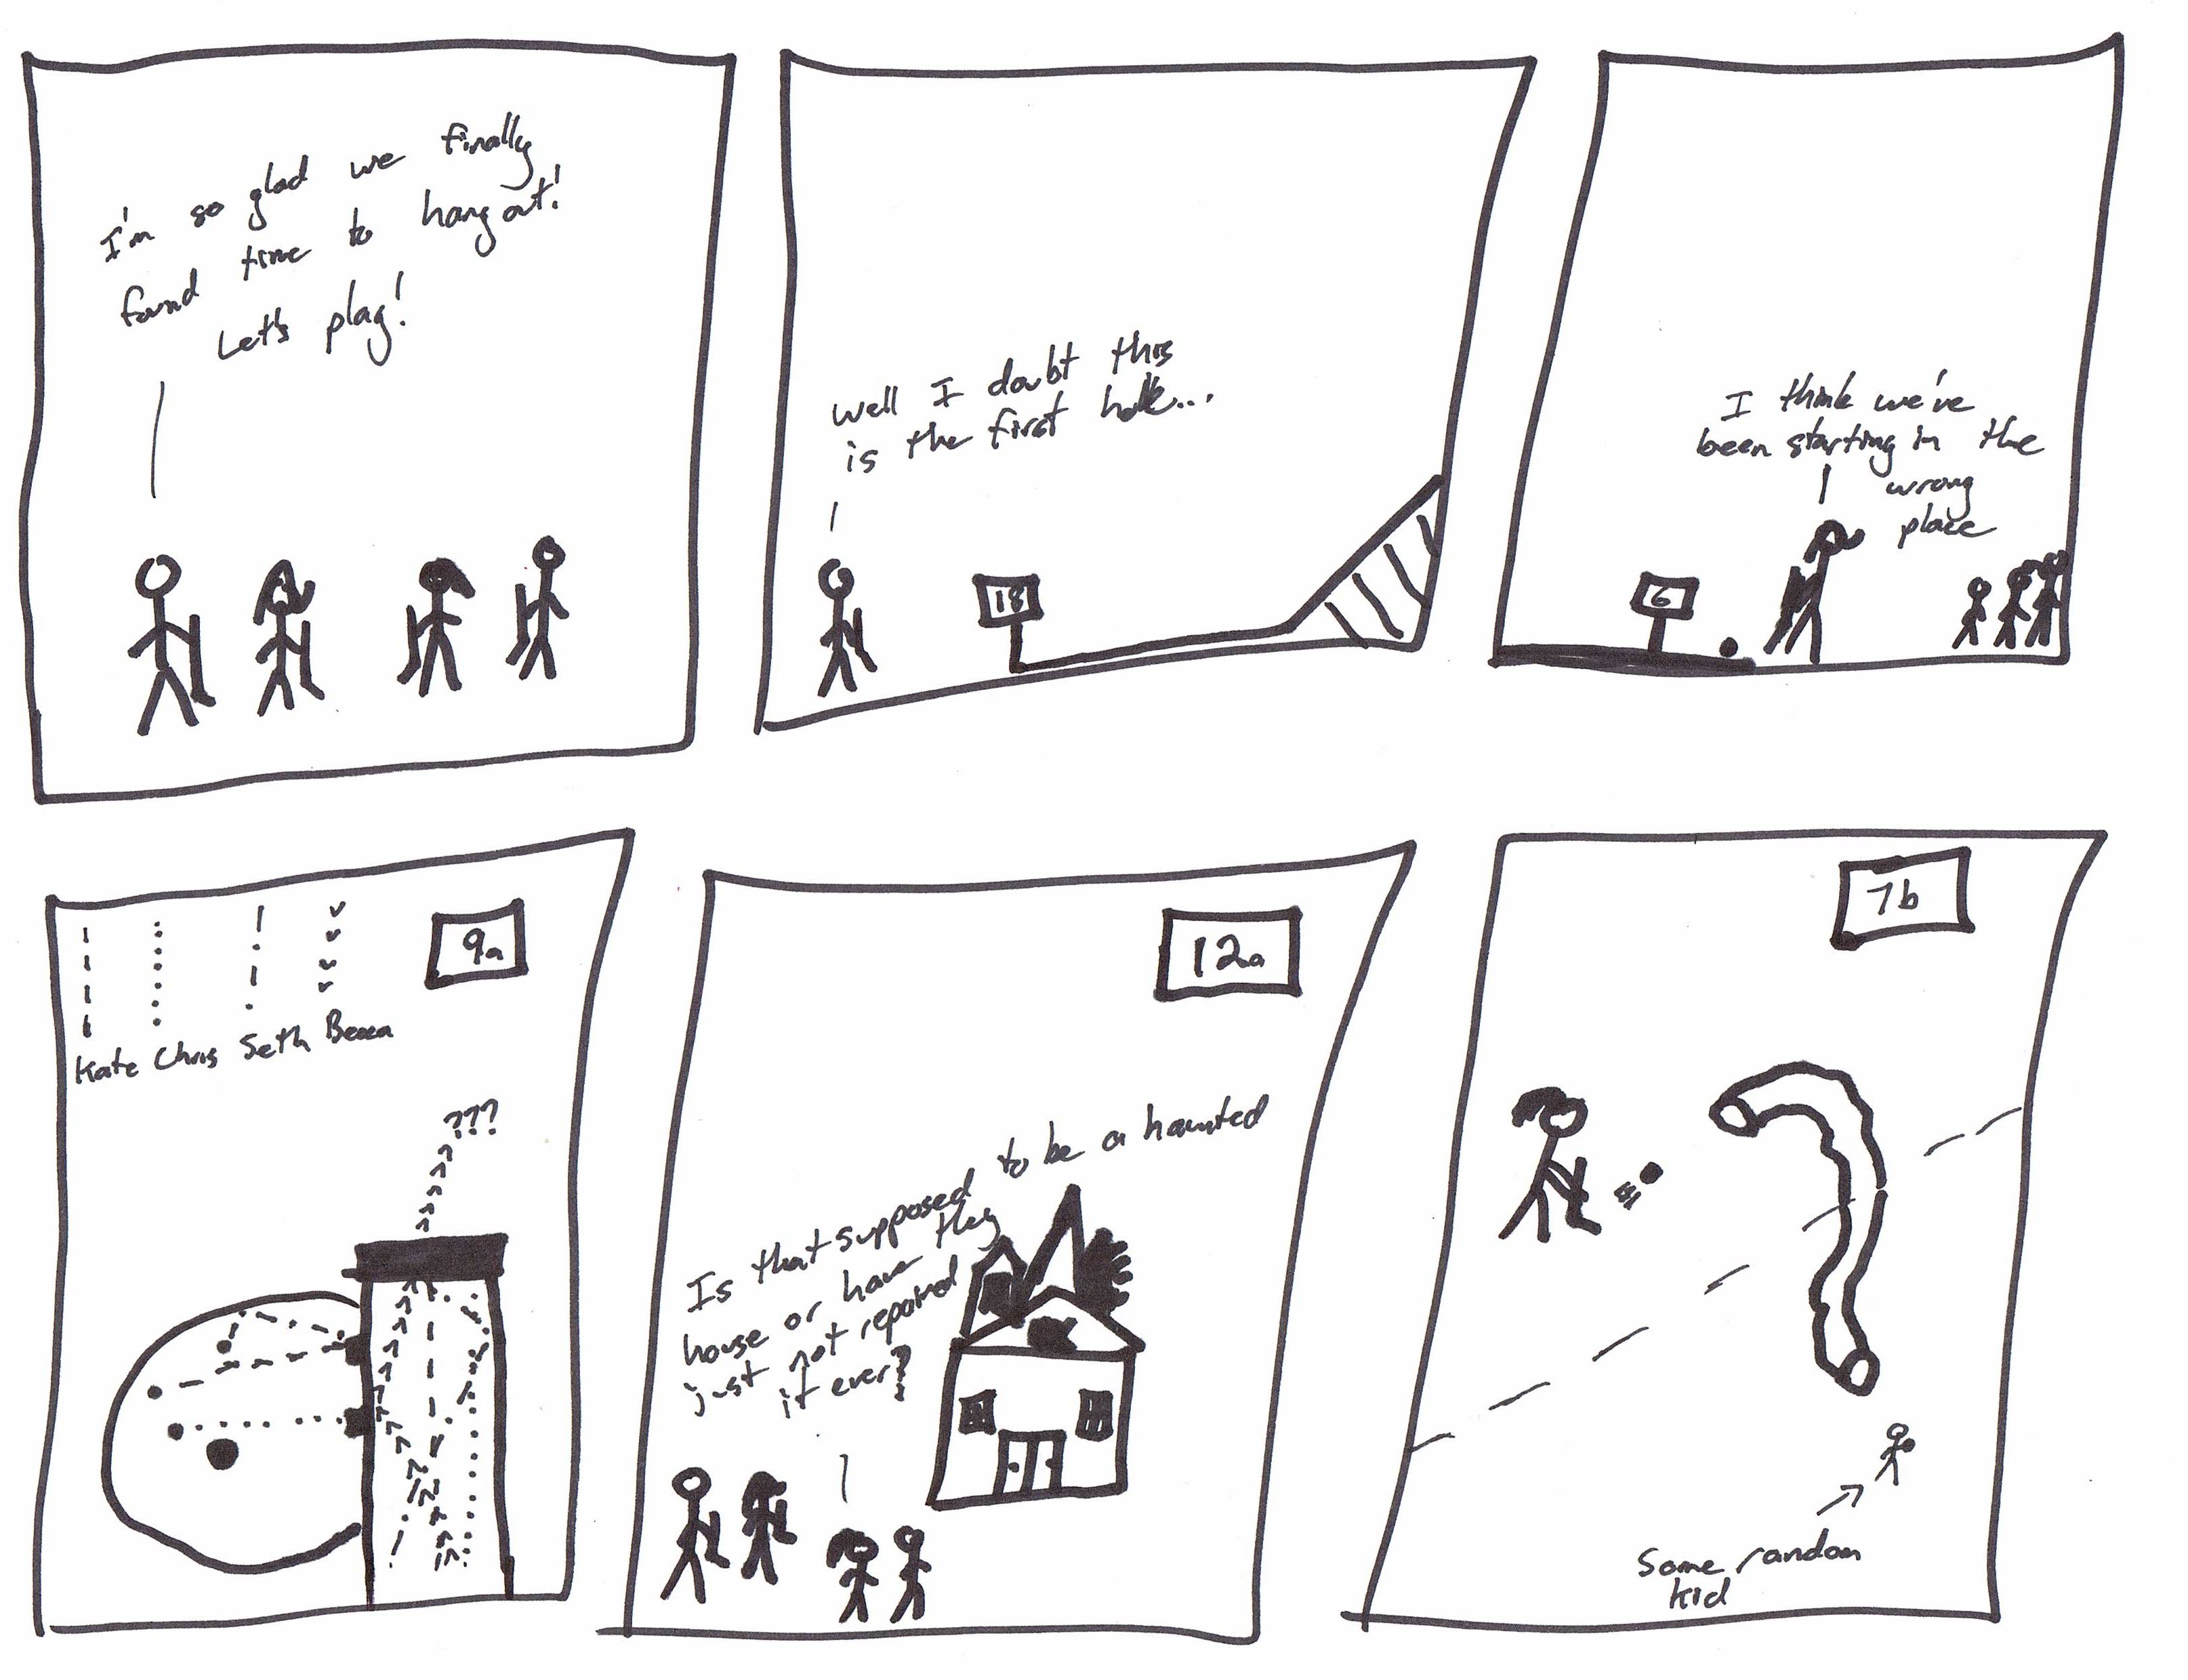 I'm so glad we finally
found time to hang out!
Let's play!
well I doubt this
is the first hole...
18
I think we've
been starting in the
wrong
place
6
9a
Kate Chris Seth Becca
???
12a
Is that supposed to be a haunted
house or have they
just not repaired
it ever?
7b
Some random
kid